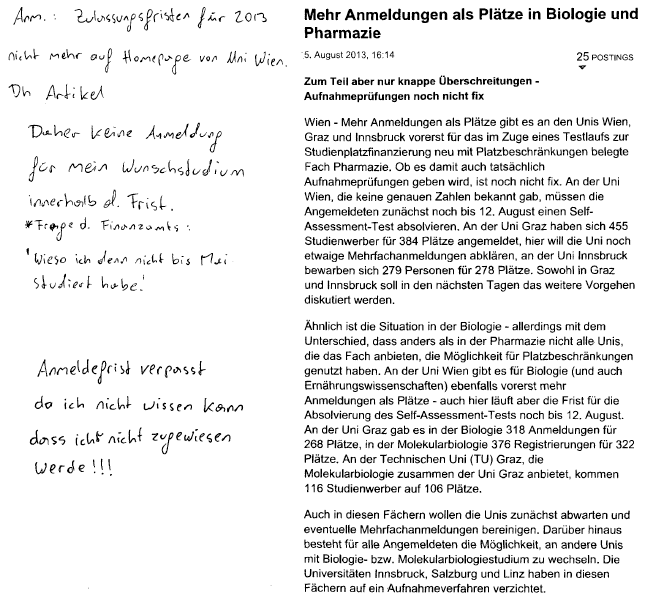 Anm.: Zulassungsfristen für 2013
nicht mehr auf Homepage von Uni Wien.
Dh Artikel
Daher keine Anmeldung
für mein Wunschstudium
innerhalb d. Frist.
*Frage d. Finanzamts:
'Wieso ich denn nicht bis Mai
studiert habe!'
Anmeldefrist verpasst
da ich nicht wissen kann
dass icht nicht zugewiesen
werde!!!
Mehr Anmeldungen als Plätze in Biologie und
Pharmazie
5. August 2013, 16:14
25 POSTINGS
Zum Teil aber nur knappe Überschreitungen -
Aufnahmeprüfungen noch nicht fix
Wien - Mehr Anmeldungen als Plätze gibt es an den Unis Wien,
Graz und Innsbruck vorerst für das im Zuge eines Testlaufs zur
Studienplatzfinanzierung neu mit Platzbeschränkungen belegte
Fach Pharmazie. Ob es damit auch tatsächlich
Aufnahmeprüfungen geben wird, ist noch nicht fix. An der Uni
Wien, die keine genauen Zahlen bekannt gab, müssen die
Angemeldeten zunächst noch bis 12. August einen Self-
Assessment-Test absolvieren. An der Uni Graz haben sich 455
Studienwerber für 384 Plätze angemeldet, hier will die Uni noch
etwaige Mehrfachanmeldungen abklären, an der Uni Innsbruck
bewarben sich 279 Personen für 278 Plätze. Sowohl in Graz
und Innsbruck soll in den nächsten Tagen das weitere Vorgehen
diskutiert werden.
Ähnlich ist die Situation in der Biologie - allerdings mit dem
Unterschied, dass anders als in der Pharmazie nicht alle Unis,
die das Fach anbieten, die Möglichkeit für Platzbeschränkungen
genutzt haben. An der Uni Wien gibt es für Biologie (und auch
Ernährungswissenschaften) ebenfalls vorerst mehr
Anmeldungen als Plätze - auch hier läuft aber die Frist für die
Absolvierung des Self-Assessment-Tests noch bis 12. August.
An der Uni Graz gab es in der Biologie 318 Anmeldungen für
268 Plätze, in der Molekularbiologie 376 Registrierungen für 322
Plätze. An der Technischen Uni (TU) Graz, die
Molekularbiologie zusammen der Uni Graz anbietet, kommen
116 Studienwerber auf 106 Plätze.
Auch in diesen Fächern wollen die Unis zunächst abwarten und
eventuelle Mehrfachanmeldungen bereinigen. Darüber hinaus
besteht für alle Angemeldeten die Möglichkeit, an andere Unis
mit Biologie- bzw. Molekularbiologiestudium zu wechseln. Die
Universitäten Innsbruck, Salzburg und Linz haben in diesen
Fächern auf ein Aufnahmeverfahren verzichtet.